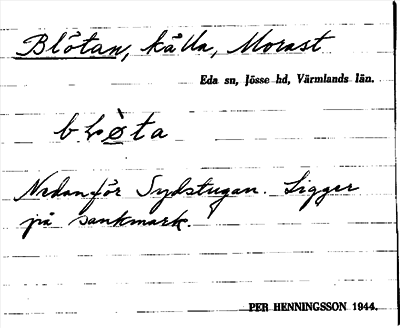 Blötan, källa, Morast
Eda sn, Jösse hd, Värmlands län.
Nedanför Sydstugan. Ligger
på sankmark.
PER HENNINGSSON 1944.